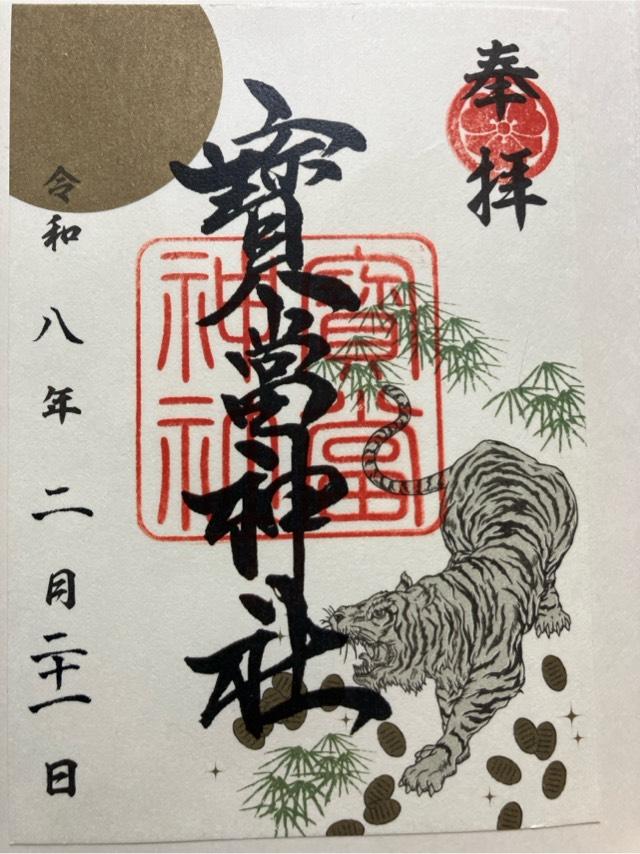 奉拝
寳當神社
寳當神社
令和八年二月二十一日